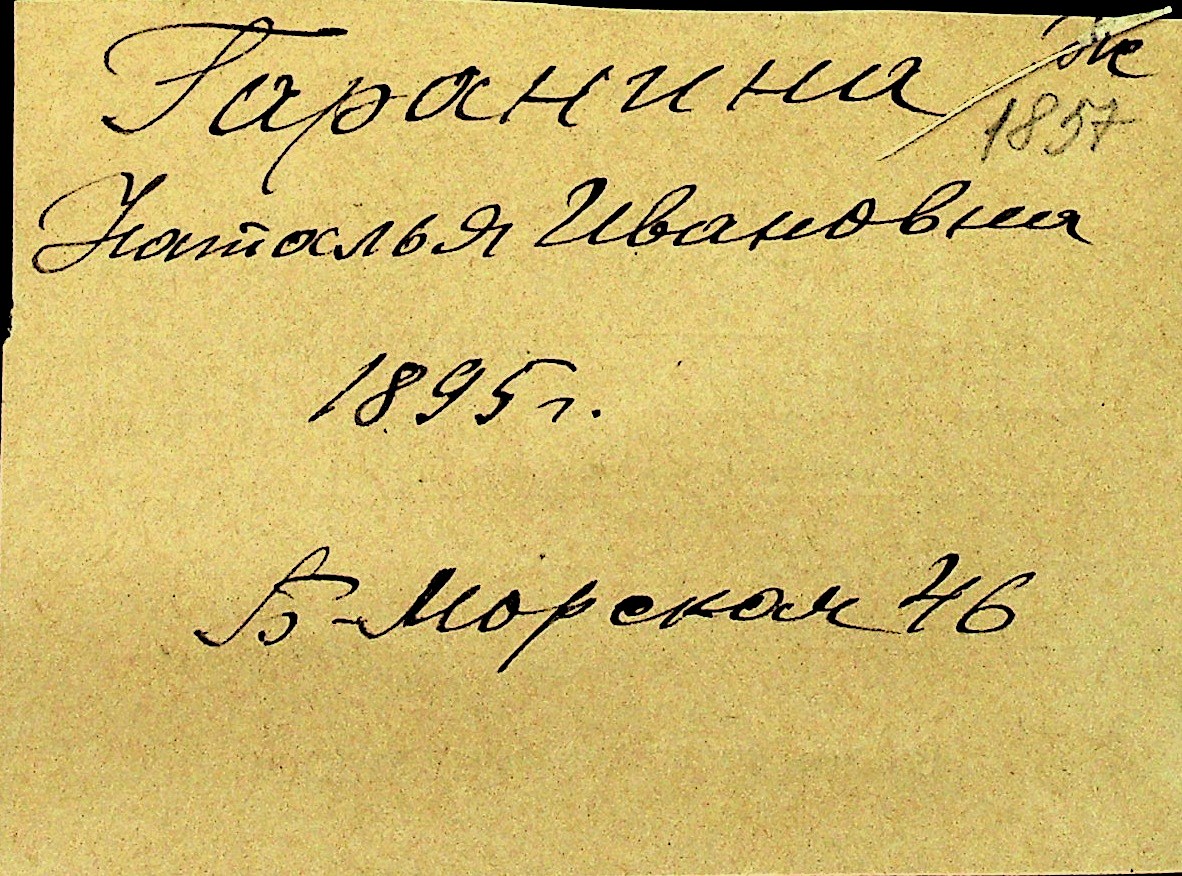 Гаранина Ж
1857
Наталья Ивановна
1895 г.
Б-Морская 46